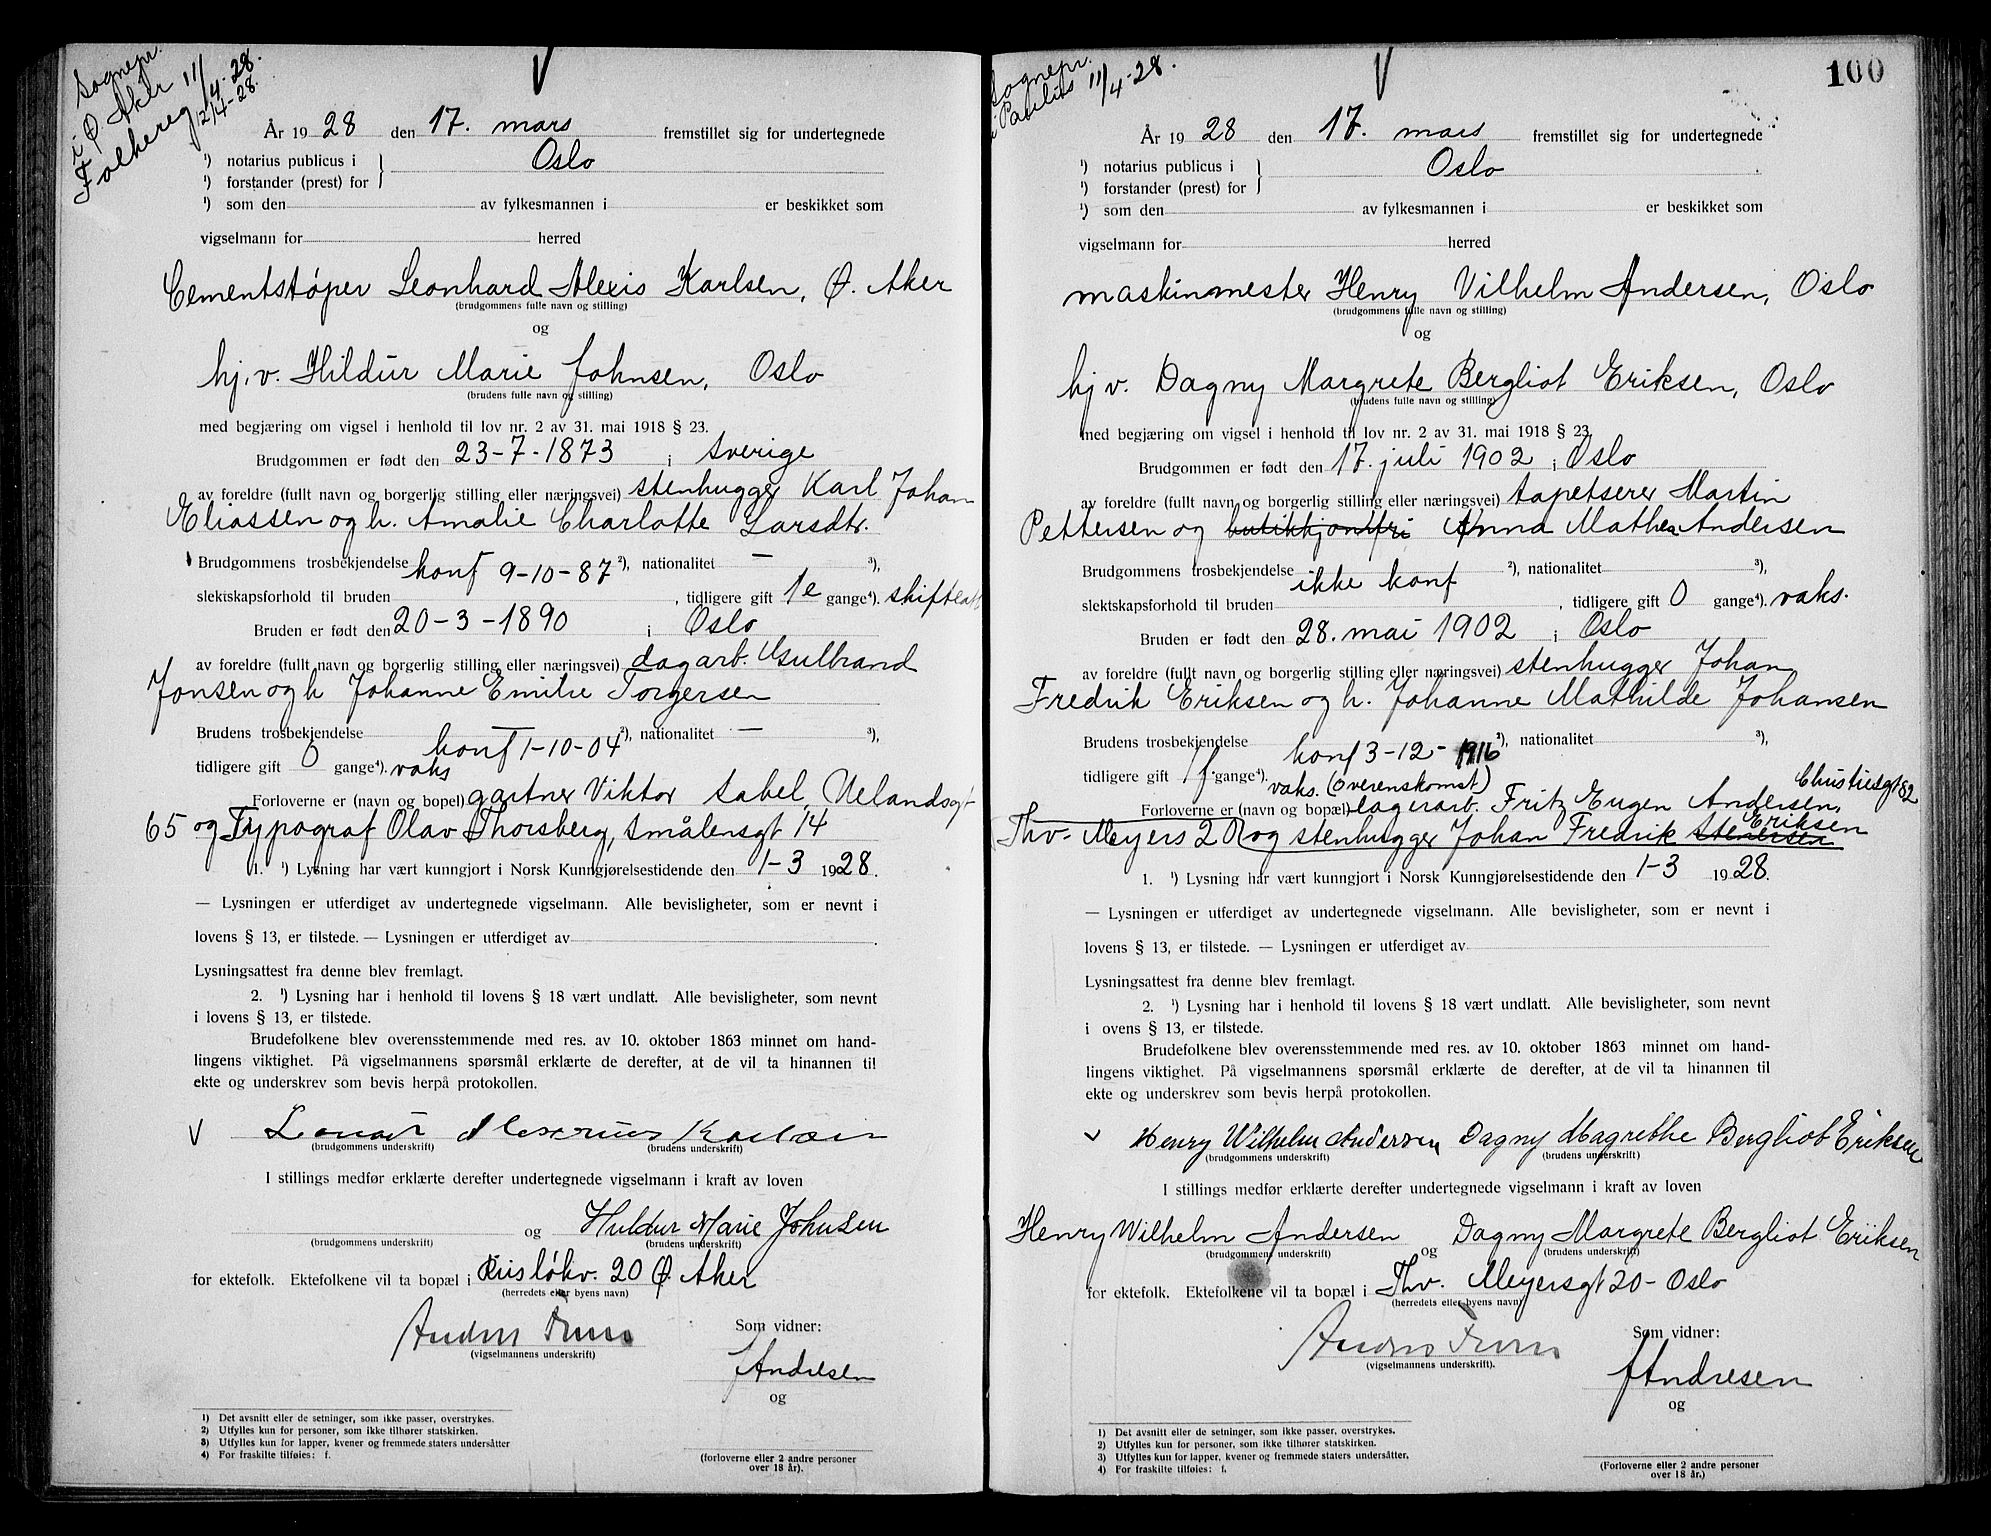 Sognepr.
i Ø Aker 11/4-28.
Folkereg 12/4-28.
År 1928 den 17. mars fremstillet sig for undertegnede
¹) notarius publicus i } Oslo
¹) forstander (prest) for
¹) som den av fylkesmannen i er beskikket som
vigselmann for herred
Cementstøper Leonhard Alexis Karlsen, Ø. Aker
(brudgommens fulle navn og stilling)
og
hj.v. Hildur Marie Johnsen, Oslo
(brudens fulle navn og stilling)
med begjæring om vigsel i henhold til lov nr. 2 av 31. mai 1918 § 23.
Brudgommen er født den 23-7-1873 i Sverige
av foreldre (fullt navn og borgerlig stilling eller næringsvei) stenhugger Karl Johan
Eliassen og h. Amalie Charlotte Larsdtr.
Brudgommens trosbekjendelse konf 9-10-87 ²), nationalitet — ³),
slektskapsforhold til bruden , tidligere gift 1e gange⁴). skifteatt
Bruden er født den 20-3-1890 i Oslo
av foreldre (fullt navn og borgerlig stilling eller næringsvei) dagarb. Gulbrand
Jonsen og h Johanne Emilie Torgersen
Brudens trosbekjendelse konf 1-10-04 ²), nationalitet — ³),
tidligere gift 0 gange⁴). vaks
Forloverne er (navn og bopel) gartner Viktor Sabel, Uelandsgt
65 og Typograf Olav Thorsberg, Smålensgt 14
1. ¹) Lysning har vært kunngjort i Norsk Kunngjørelsestidende den 1-3 1928.
— Lysningen er utferdiget av undertegnede vigselmann. Alle bevisligheter, som er nevnt i
lovens § 13, er tilstede. — Lysningen er utferdiget av .
Lysningsattest fra denne blev fremlagt.
2. ¹) Lysning har i henhold til lovens § 18 vært undlatt. Alle bevisligheter, som nevnt
i lovens § 13, er tilstede.
Brudefolkene blev overensstemmende med res. av 10. oktober 1863 minnet om hand-
lingens viktighet. På vigselmannens spørsmål erklærte de derefter, at de vil ta hinannen til
ekte og underskrev som bevis herpå protokollen.
Karlsen
(brudgommens underskrift) (brudens underskrift)
I stillings medfør erklærte derefter undertegnede vigselmann i kraft av loven
og Huldur Marie Johnsen
(brudgommens underskrift) (brudens underskrift)
for ektefolk. Ektefolkene vil ta bopæl i Risløkv. 20 Ø. Aker
(herredets eller byens navn)
Som vidner:
(vigselmannens underskrift)
J Andresen
og
1) Det avsnitt eller de setninger, som ikke passer, overstrykes.
2) Utfylles kun for personer, som ikke tilhører statskirken.
3) Utfylles kun for lapper, kvener og fremmede staters undersåtter
4) For fraskilte tilføies: f.
(forloverne eller 2 andre personer
over 18 år).
100
Sognepr.
i Paulus 11/4-28.
År 1928 den 17. mars fremstillet sig for undertegnede
¹) notarius publicus i } Oslo
¹) forstander (prest) for
¹) som den av fylkesmannen i er beskikket som
vigselmann for herred
maskinmester Henry Vilhelm Andersen, Oslo
(brudgommens fulle navn og stilling)
og
hj v. Dagny Margrete Bergliot Eriksen, Oslo
(brudens fulle navn og stilling)
med begjæring om vigsel i henhold til lov nr. 2 av 31. mai 1918 § 23
Brudgommen er født den 17. juli 1902 i Oslo
av foreldre (fullt navn og borgerlig stilling eller næringsvei) tapetserer Martin
Pettersen og butikkjomfru Anna Mathea Andersen
Brudgommens trosbekjendelse ikke konf ²), nationalitet ³),
slektskapsforhold til bruden , tidligere gift 0 gange⁴). vaks.
Bruden er født den 28. mai 1902 i Oslo
av foreldre (fullt navn og borgerlig stilling eller næringsvei) stenhugger Johan
Fredrik Eriksen og h. Johanne Mathilde Johansen
Brudens trosbekjendelse konf 3-12-1916 ²), nationalitet ³),
tidligere gift 1 f. gange⁴). vaks. (overenskomst)
Christiesgt 82
Forloverne er (navn og bopæl) lagerarb. Fritz Eugen Andersen,
Eriksen
Thv. Meyers 20 og stenhugger Johan Fredrik Stenersen
1. ¹) Lysning har vært kunngjort i Norsk Kunngjørelsestidende den 1-3 1928.
— Lysningen er utferdiget av undertegnede vigselmann. Alle bevisligheter, som er nevnt i
lovens § 13, er tilstede. — Lysningen er utferdiget av
Lysningsattest fra denne blev fremlagt.
2. ¹) Lysning har i henhold til lovens § 18 vært undlatt. Alle bevisligheter, som nevnt
i ovens § 13, er tilstede.
Brudefolkene blev overensstemmende med res. av 10. oktober 1863 minnet om hand-
lingens viktighet. På vigselmannens spørsmål erklærte de derefter, at de vil ta hinannen til
ekte og underskrev som bevis herpå protokollen.
Henry Wilhelm Andersen Dagny Magrethe Bergliot Eriksen
(brudgommens underskrift) (brudens underskrift)
I stillings medfør erklærte derefter undertegnede vigselmann i kraft av loven
Henry Wilhelm Andersen og Dagny Margrete Bergliot Eriksen
(brudgommens underskrift) (brudens underskrift)
for ektefolk. Ektefolkene vil ta bopæl i Thv. Meyersgt 20 - Oslo
(herredets eller byens navn)
Som vidner:
(vigselmannens underskrift).
J Andresen
og
1) Det avsnitt eller de setninger, som ikke passer, overstrykes.
2) Utfylles kun for personer, som ikke tilhører statskirken.
3) Utfylles kun for lapper, kvener og fremmede staters undersåtter.
4) For fraskilte tilføies: f.
(Forloverne eller 2 andre personer
over 18 år.)